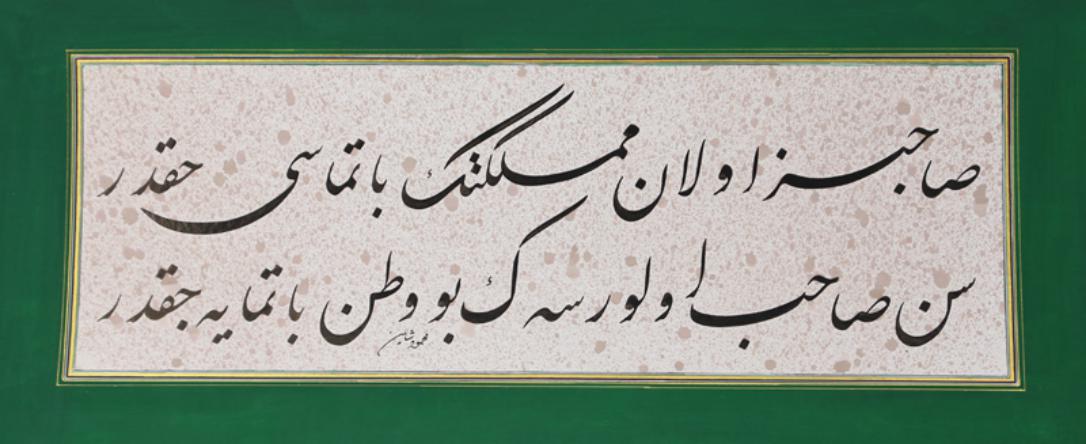 صاحبسز اولان مملكتڭ باتماسی حقدر
سن صاحب اولورسه ڭ بو وطن باتمایه جقدر
محمود شاهین